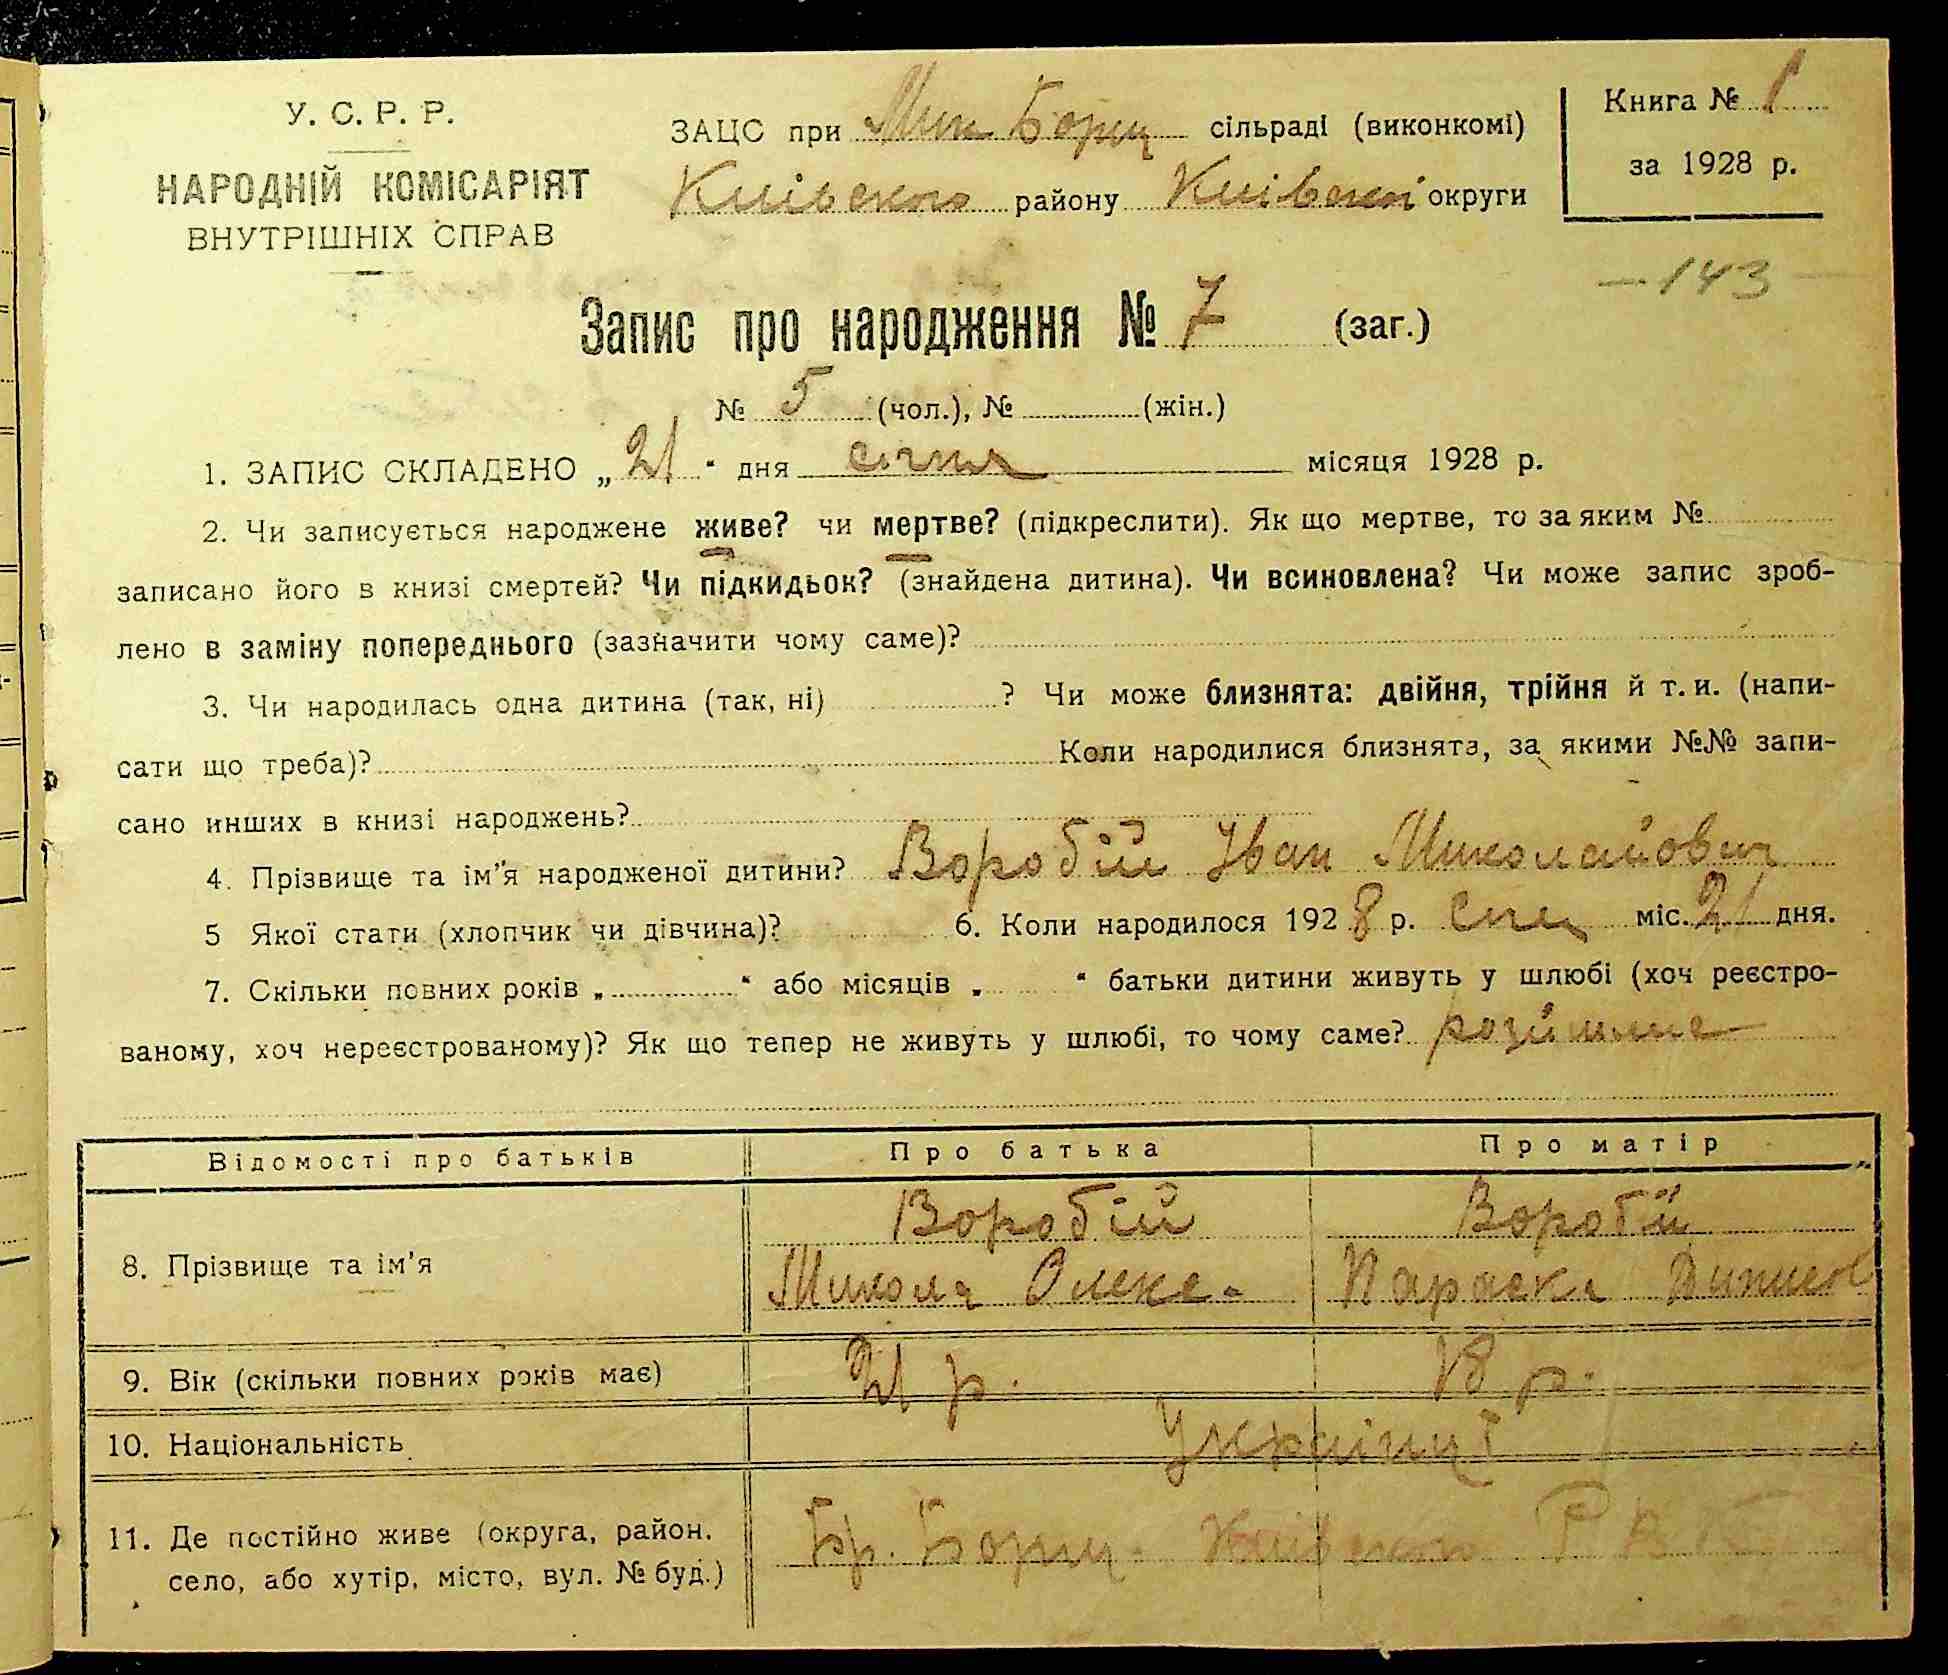 У. С. Р. Р.
НАРОДНІЙ КОМІСАРІЯТ
ВНУТРІШНІХ СПРАВ
ЗАЦС при Мик Борщ сільраді (виконкомі)
Київського району Київської округи
Книга № 1
за 1928 р.
— 143 —
Запис про народження № 7 (заг.)
№ 5 (чол.), № (жін.)
1. ЗАПИС СКЛАДЕНО „ 21 “ дня січня місяця 1928 р.
2. Чи записується народжене живе? чи мертве? (підкреслити). Як що мертве, то за яким №
записано його в книзі смертей? Чи підкидьок? (знайдена дитина). Чи всиновлена? Чи може запис зроб-
лено в заміну попереднього (зазначити чому саме)?
3. Чи народилась одна дитина (так, ні) ? Чи може близнята: двійня, трійня й т. и. (напи-
сати що треба)? Коли народилися близнята, за якими №№ запи-
сано инших в книзі народжень?
4. Прізвище та ім’я народженої дитини? Воробій Іван Миколайович
5 Якої стати (хлопчик чи дівчина)? 6. Коли народилося 1928 р. міс. 21 дня.
7. Скільки повних років „ “ або місяців „ “ батьки дитини живуть у шлюбі (хоч реєстро-
ваному, хоч нереєстрованому)? Як що тепер не живуть у шлюбі, то чому саме?
Відомості про батьків Про батька Про матір
8. Прізвище та ім’я Воробій Воробій
Микола Олекс. Параска
9. Вік (скільки повних років має) 21 р. 18 р.
10. Національність Українці
11. Де постійно живе (округа, район,
село, або хутір, місто, вул. № буд.) Бр. Борщ. Київського Р